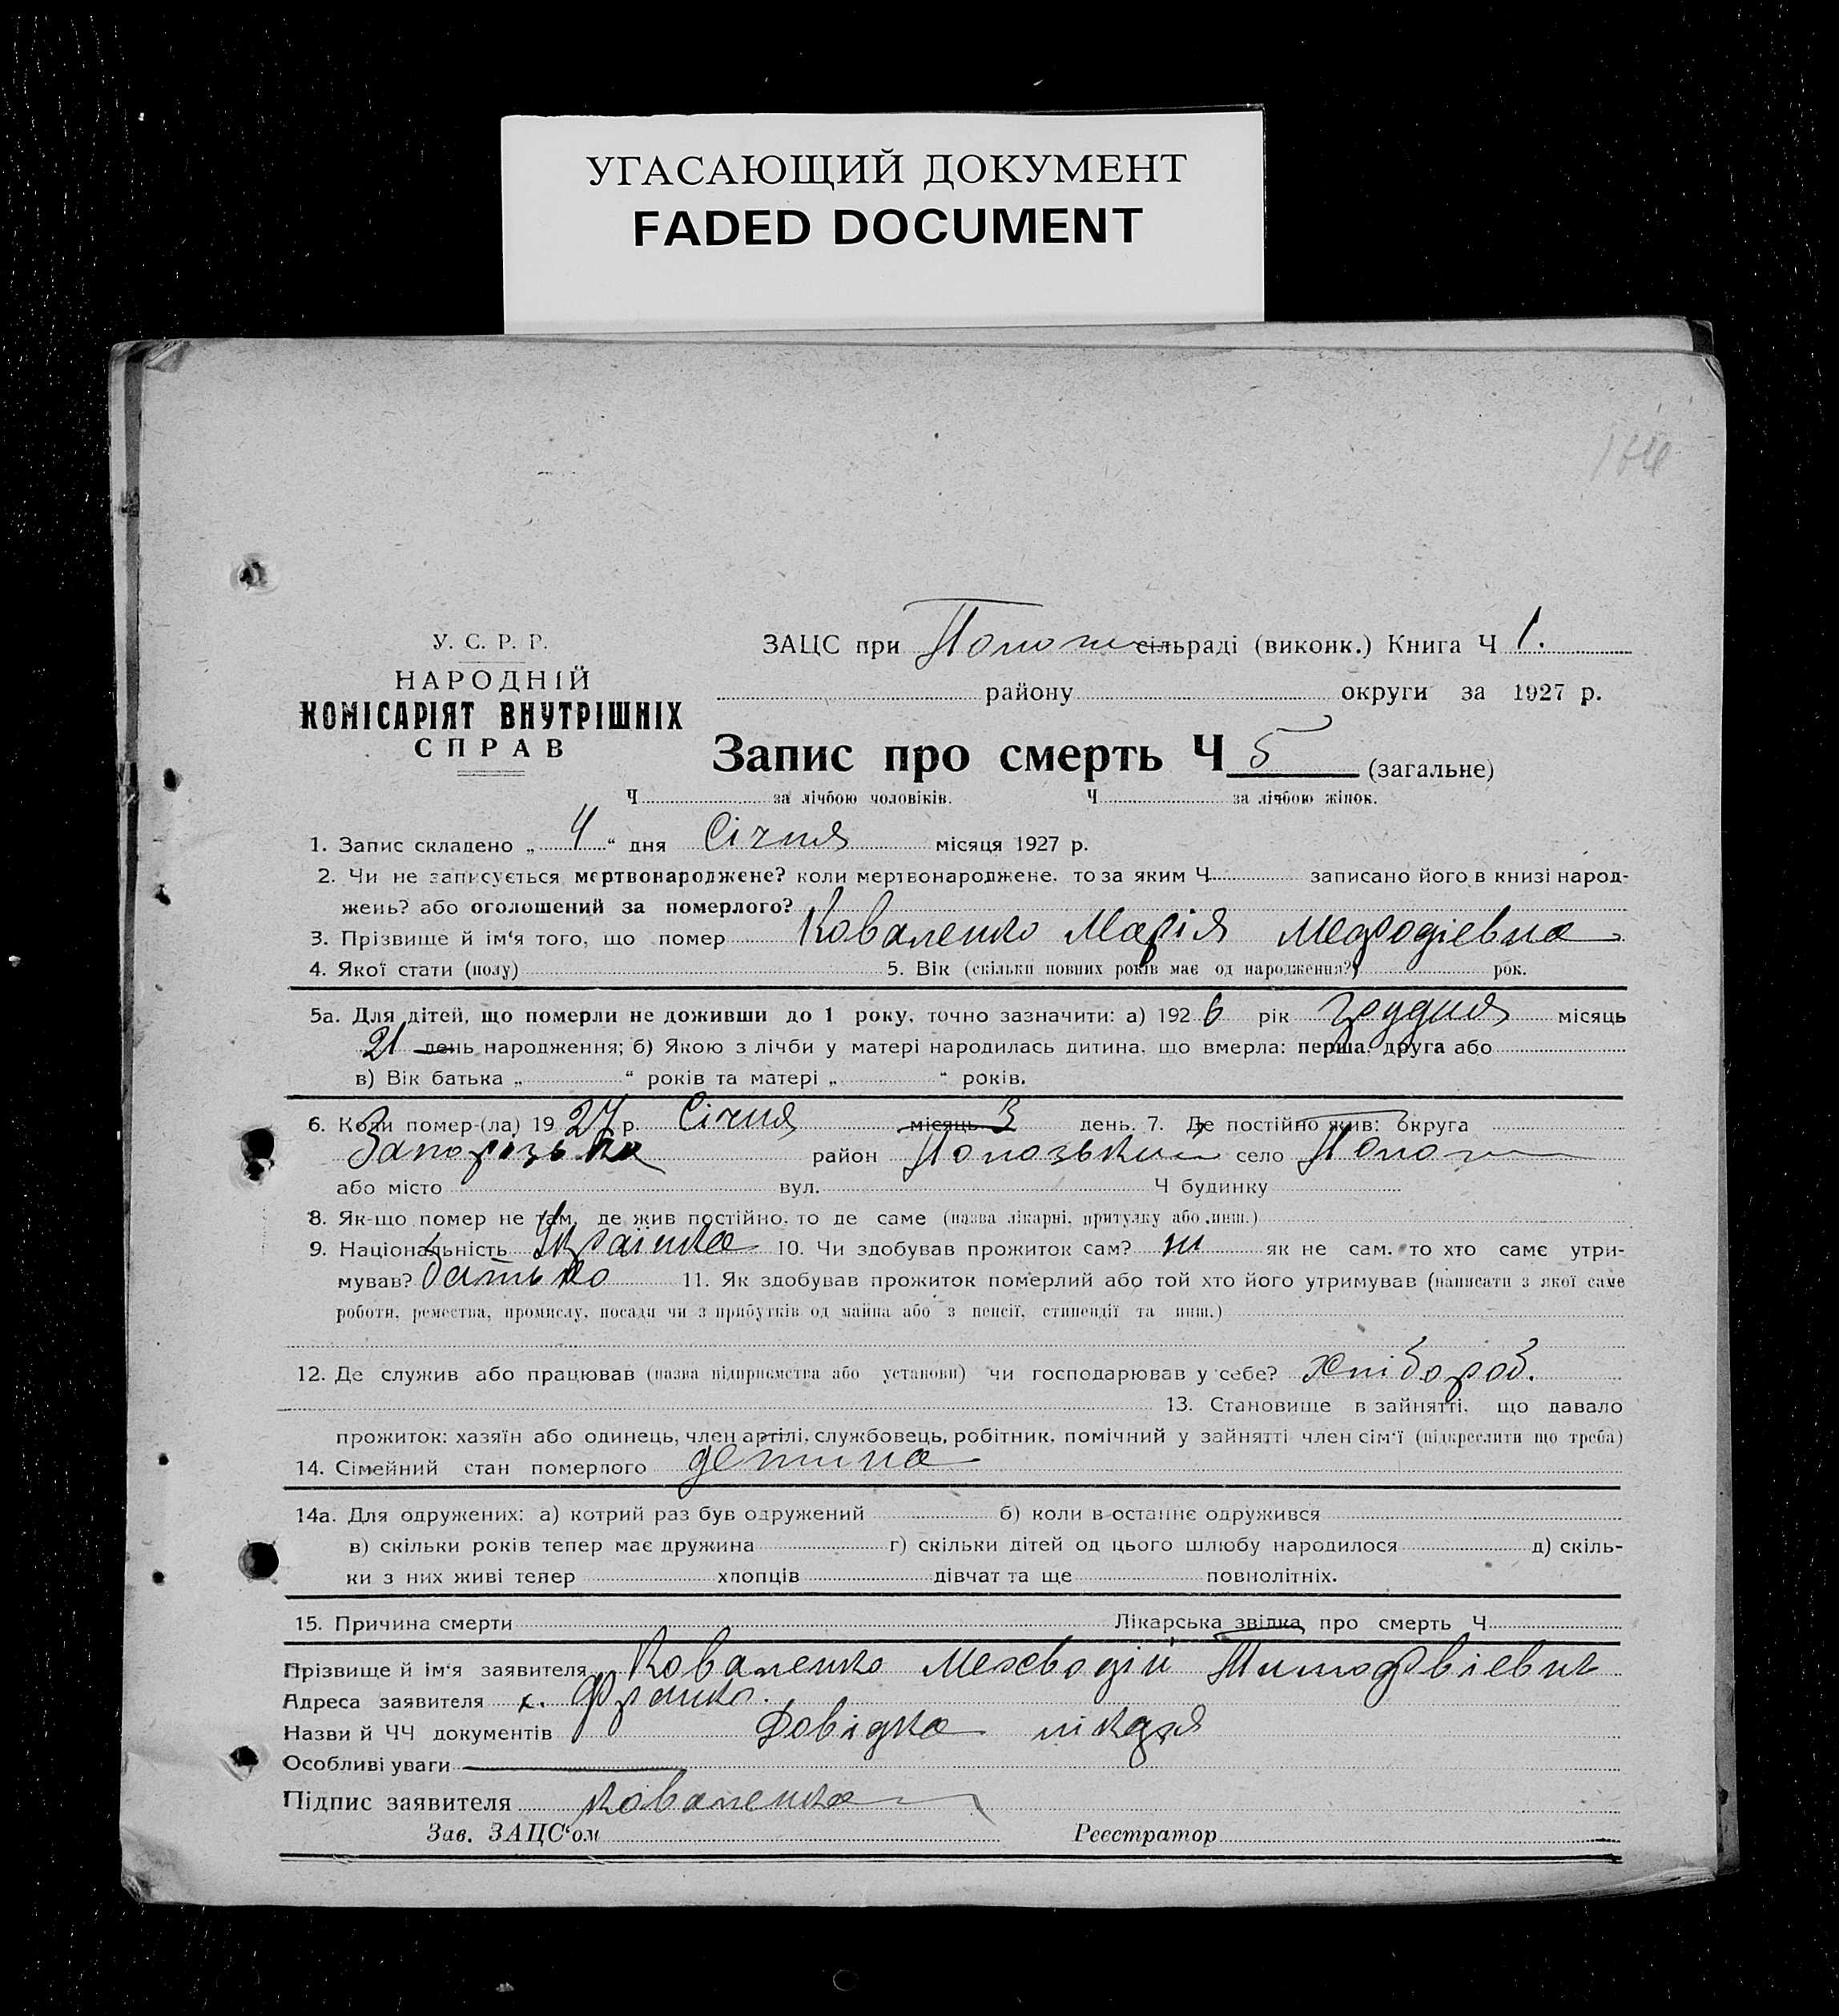 УГАСАЮЩИЙ ДОКУМЕНТ
FADED DOCUMENT
У. С. Р. Р.
НАРОДНІЙ
КОМІСАРІЯТ ВНУТРІШНІХ
СПРАВ
ЗАЦС при сільраді (виконк.) Книга Ч 1.
району округи за 1927 р.
Запис про смерть Ч 5 (загальне)
Ч за лічбою чоловіків. Ч за лічбою жінок.
1. Запис складено „ 4 “ дня Січня місяця 1927 р.
2. Чи не записується мертвонароджене? коли мертвонароджене, то за яким Ч записано його в книзі народ-
жень? або оголошений за померлого?
3. Прізвище й ім'я того, що помер Коваленко Марія Мефодієвна
4. Якої стати (полу) 5. Вік (скільки повних років має од народження?) рок.
5а. Для дітей, що померли не доживши до 1 року, точно зазначити: а) 192 6 рік грудня місяць
21 день народження; б) Якою з лічби у матері народилась дитина, що вмерла: перша, друга або
в) Вік батька „ “ років та матері „ “ років.
6. Коли помер-(ла) 19 27 р. Січня місяць 3 день. 7. Де постійно жив: округа
Запорізька район Пологзький село Пологи
або місто вул. Ч будинку
8. Як-що помер не там, де жив постійно, то де саме (назва лікарні, притулку або инш.)
9. Національність Українка 10. Чи здобував прожиток сам? ні як не сам, то хто саме утри-
мував? батько 11. Як здобував прожиток померлий або той хто його утримував (написати з якої саме
роботи, ремества, промислу, посади чи з прибутків од майна або з пенсії, стипендії та инш.)
12. Де служив або працював (назва підприємства або установи) чи господарював у себе? хлібороб.
13. Становище в зайнятті, що давало
прожиток: хазяїн або одинець, член артілі, службовець, робітник, помічний у зайнятті член сім'ї (підкреслити що треба)
14. Сімейний стан померлого детина
14а. Для одружених: а) котрий раз був одружений б) коли в-останнє одружився
в) скільки років тепер має дружина г) скільки дітей од цього шлюбу народилося д) скіль-
ки з них живі тепер хлопців дівчат та ще повнолітніх.
15. Причина смерти Лікарська звідка про смерть Ч
Прізвище й ім'я заявителя Коваленко Мехводій
Адреса заявителя х. Франко.
Назви й ЧЧ документів Довідка лікаря
Особливі уваги
Підпис заявителя Коваленко
Зав. ЗАЦС'ом Реєстратор